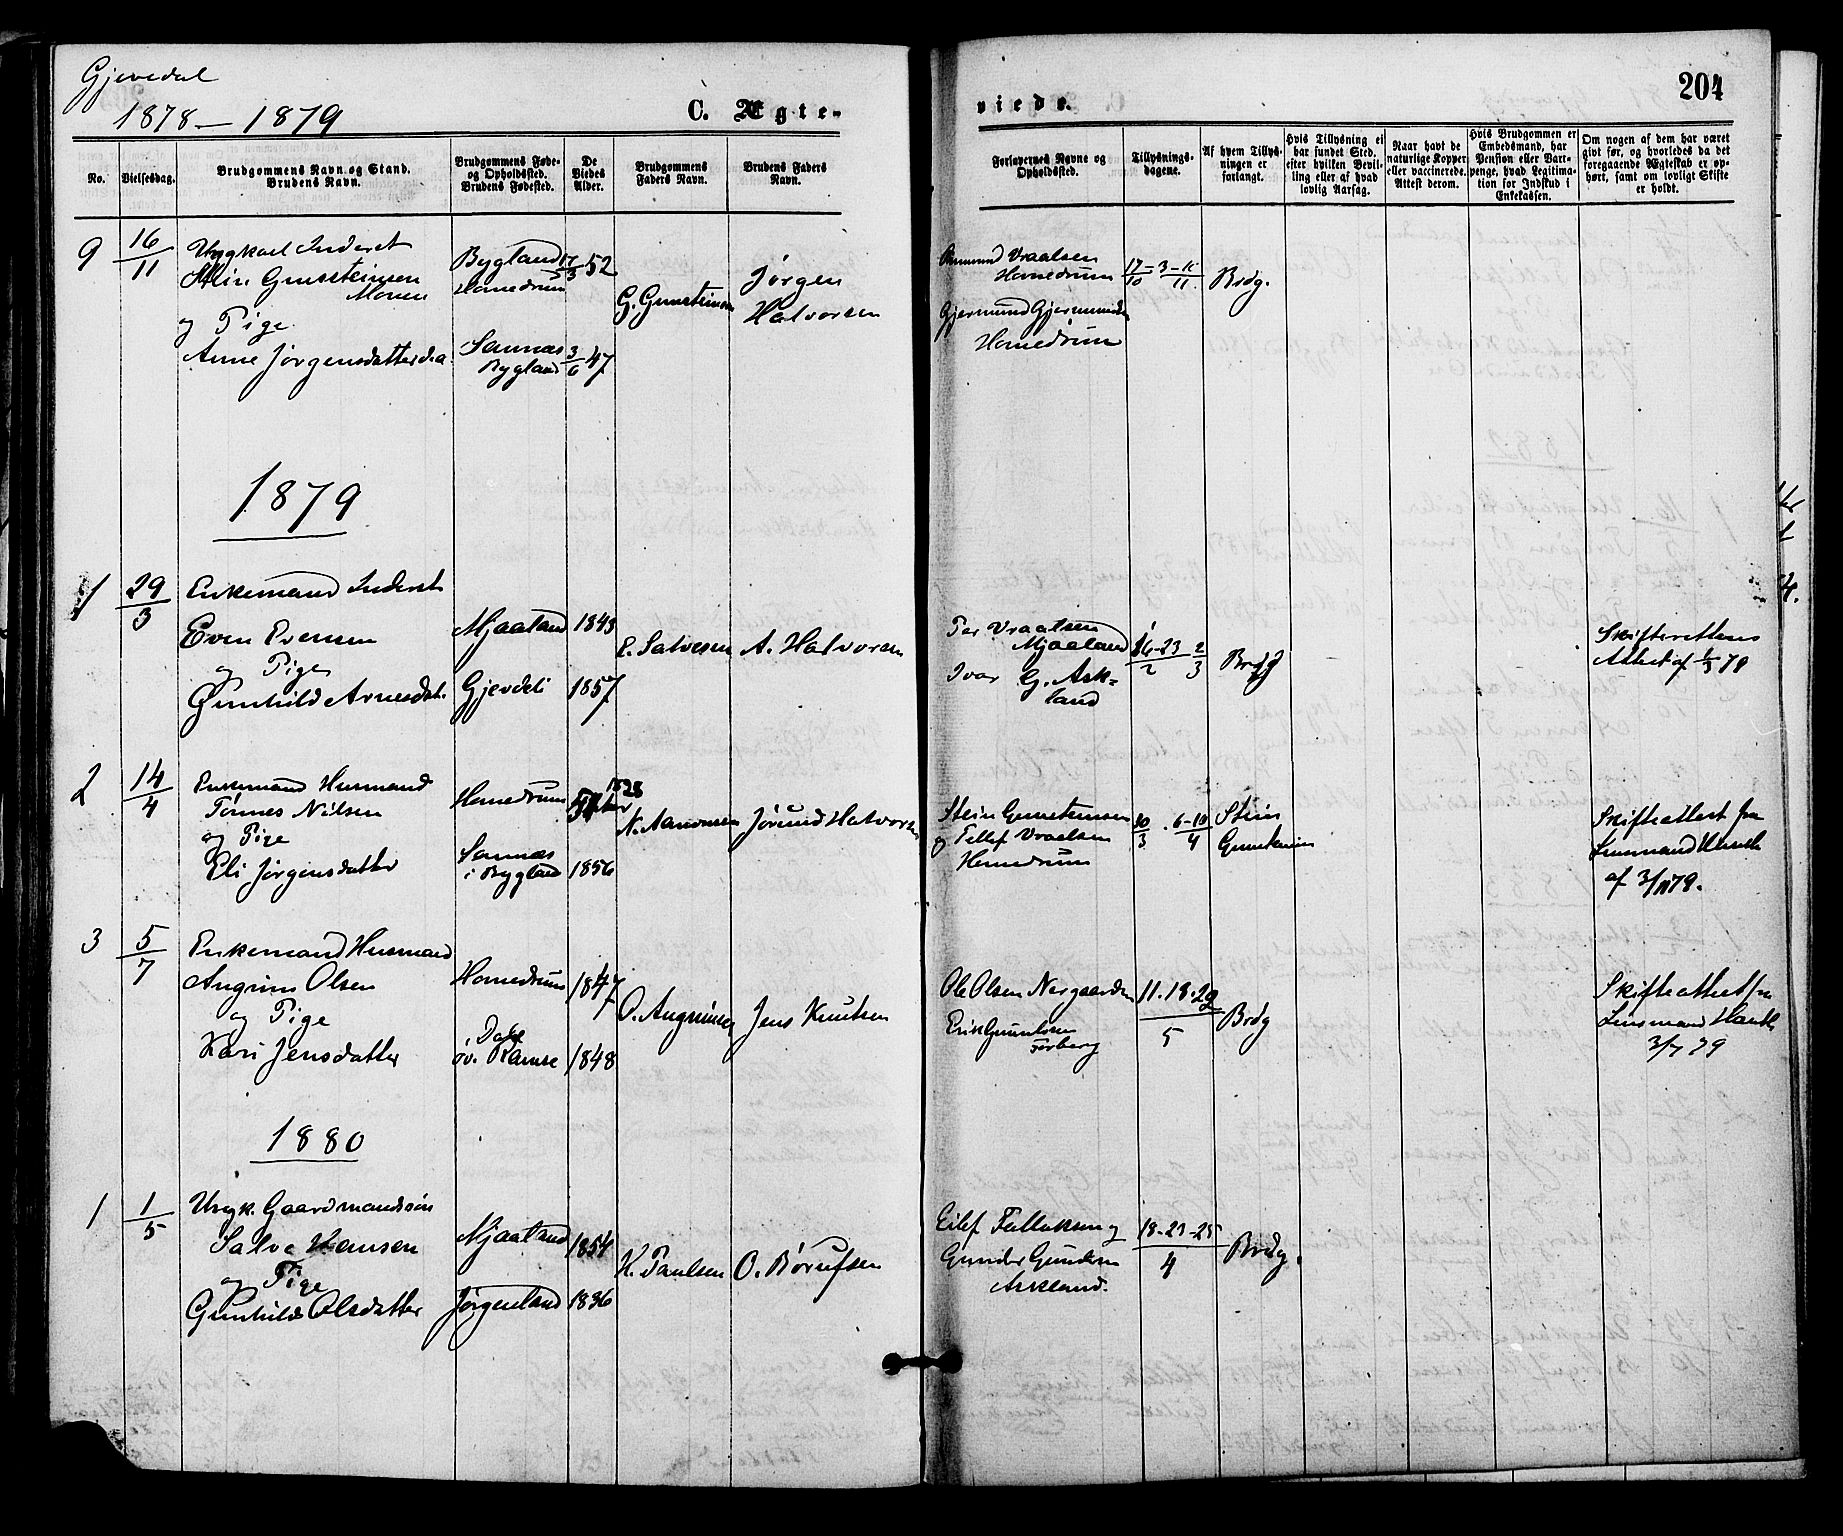 Gjevedal
1878 – 1879
C. Ægte-
viede.
204
No.
Vielsesdag.
Brudgommens Navn og Stand.
Brudens Navn.
Brudgommens Føde-
og Opholdssted.
Brudens Fødested.
De
Viedes
Alder.
Brudgommens
Faders Navn.
Brudens Faders
Navn.
Forlovernes Navne og
Opholdssted.
Tillysnings-
dagene.
Af hvem Tillys-
ningen er
forlangt.
Hvis Tillysning ei
har fundet Sted,
efter hvilken Bevil-
ling eller af hvad
lovlig Aarsag.
Naar havt de
naturlige Kopper
eller vaccinerede.
Attest derom.
Hvis Brudgommen er
Embedsmand, har
Pension eller Vart-
penge, hvad Legitima-
tion for Indskud i
Enkekassen.
Om nogen af dem har været
givt før, og hvorledes da det
foregaaende Ægteskab er op-
hørt, samt om lovligt Skifte
er holdt.
9 16/11 Ungkarl Inderst
Stein Gunsteinsen
Moen
og Pige
Anne Jørgensdatter
Bygland
Homedrum
17/3 52
Sannæs
Bygland
3/6 47
G. Gunsteinsen
Jørgen
Halvorsen
Vraalsen
Homedrum
Gjermund Gjermundsen
Homedrum
17/10 3-11/11
Brdg.
1879
1 29/3 Enkemand Inderst
Even Evensen
og Pige
Gunhild Arnesdat.
Mjaaland 1843
Gjevdeli 1857
E. Salvesen
A. Halvorsen
Tor Vraalsen
Mjaaland
Ivar G. Ask-
land
16-23/2 2/3
Brdg
Skifterettens
Attest af 1/3 79
2 14/4 Enkemand Husmand
Tønnes Nilsen
og Pige
Eli Jørgensdatter
Homedrum
1828
Sannæs
i Bygland 1856
N. Aanonsen
Jørund Halvorsen
Stein Gunsteinsen
og Tellef Vraalsen
Homedrum
30/3 . 6-10/4
Stein
Gunsteinsen
Skifteattest fra
Lensmand
af 3/79.
3 5/7 Enkemand Husmand
Augrim Olsen
og Pige
Kari Jensdatter
Homedrum 1847
Dale
øv. Ramse 1848
O. Augrimsen
Jens Knutsen
Ole Olsen Norgaarden
Erik Gunulfsen
11.18.22/5
Brdg
Skifteattest fra
Lensmand
3/7 79
1880
1 1/5 Ungk. Gaardmandssøn
Salve Hansen
og Pige
Gunhild Olsdatter
Mjaaland 1854
Jørgenland 1836
H. Paulsen
O. Børufsen
Eilef Fallaksen og
Gunder Gundersen
Askland.
18-23-25/4
Brdg.